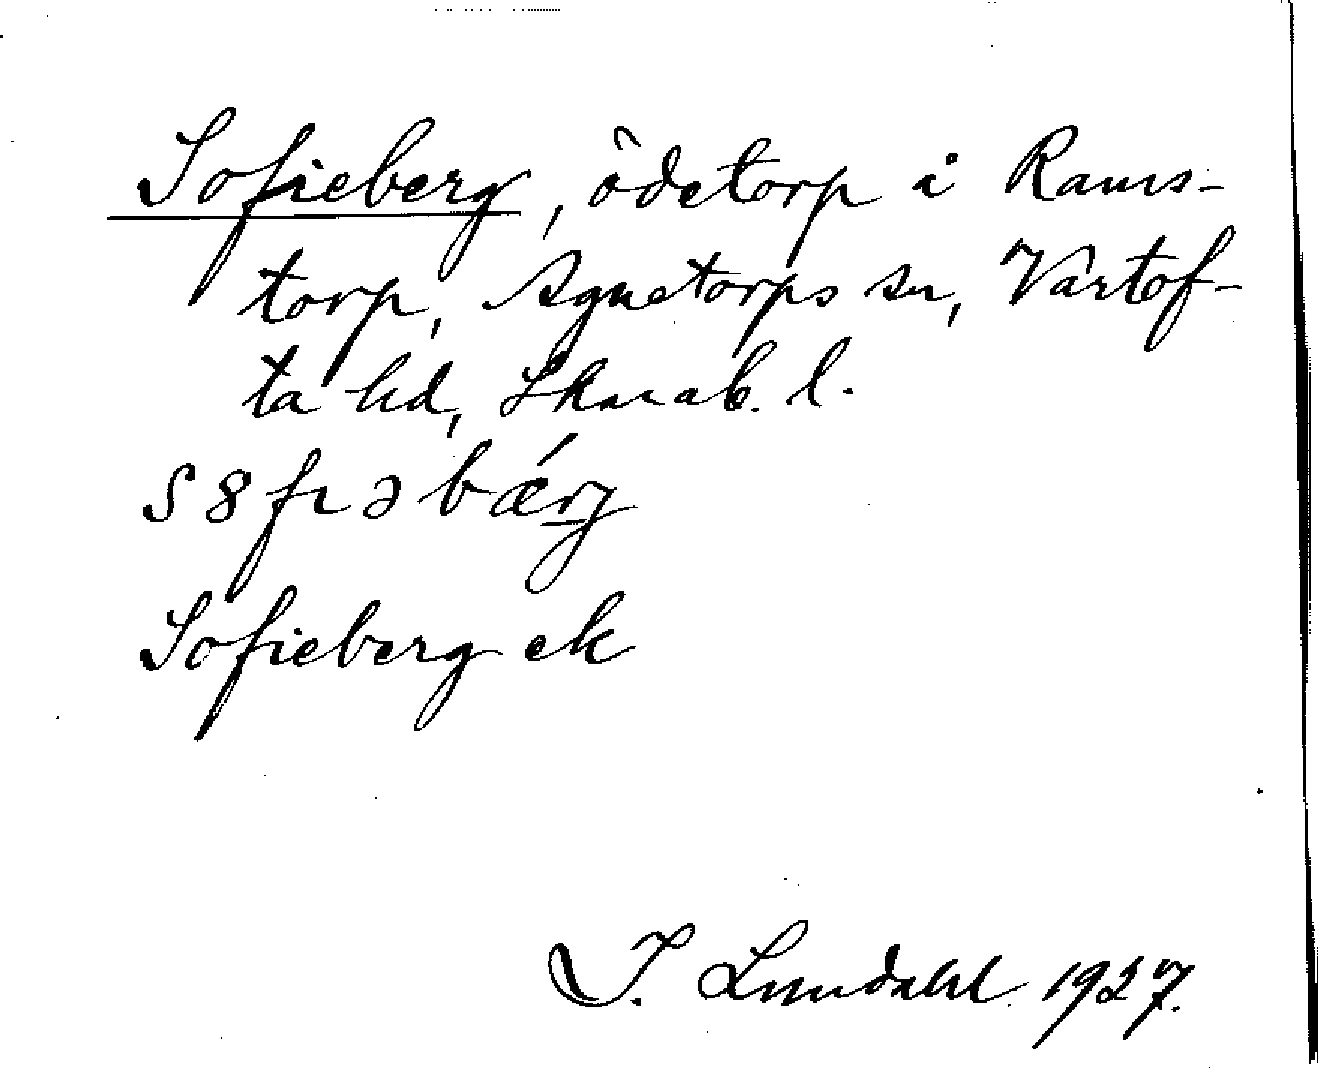 Sofieberg, ödetorp i Rams-
torp, Agnetorps sn, Vartof-
ta hd, Skarab. l.
s8fiəbǽrj
Sofieberg ek
I. Lundahl 1927.